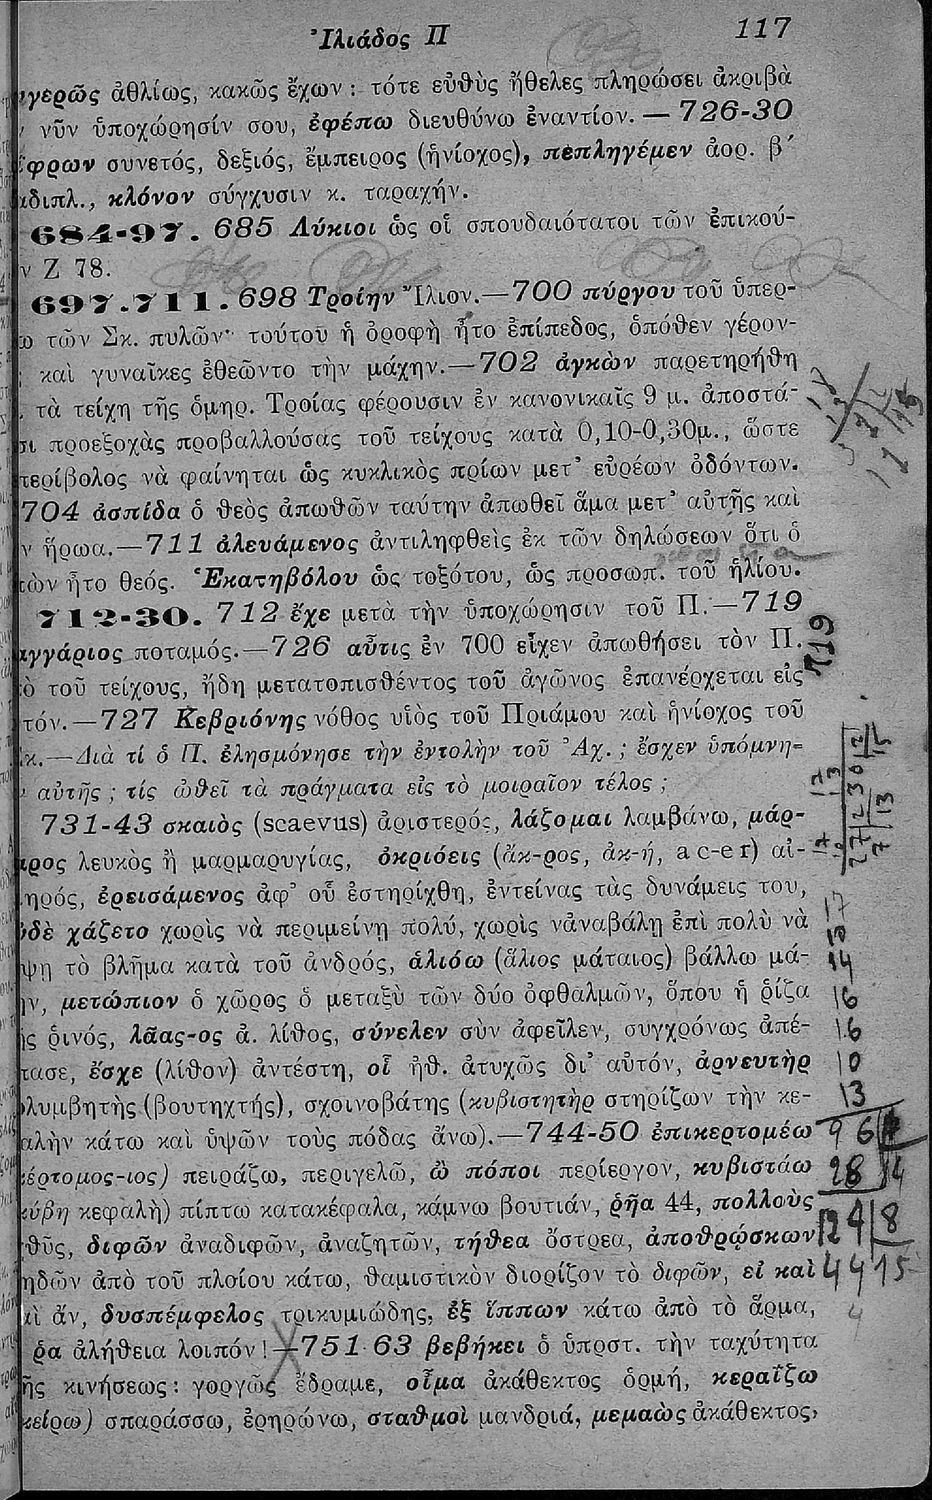 Ἰλιάδος Π 117
γερῶς ἀθλίως, κακῶς ἔχων : τότε εὐθὺς ἤθελες πληρώσει ἀκριβὰ
νῦν ὑποχώρησίν σου, ἐφέπω διευθύνω ἐναντίον. — 726-30
φρων συνετός, δεξιός, ἔμπειρος (ἡνίοχος), πεπληγέμεν ἀορ. β΄
διπλ., κλόνον σύγχυσιν κ. ταραχήν.
684-97. 685 Λύκιοι ὡς οἱ σπουδαιότατοι τῶν ἐπικού-
ν Ζ 78.
697.711. 698 Τροίην Ἴλιον.—700 πύργου τοῦ ὑπερ-
ω τῶν Σκ. πυλῶν· τούτου ἡ ὀροφὴ ἦτο ἐπίπεδος, ὁπόθεν γέρον-
καὶ γυναῖκες ἐθεῶντο τὴν μάχην.—702 ἀγκὼν παρετηρήθη
τὰ τείχη τῆς ὁμηρ. Τροίας φέρουσιν ἐν κανονικαῖς 9 μ. ἀποστά-
σι προεξοχὰς προβαλλούσας τοῦ τείχους κατὰ 0,10-0,30μ., ὥστε
περίβολος νὰ φαίνηται ὡς κυκλικὸς πρίων μετ' εὐρέων ὀδόντων.
704 ἀσπίδα ὁ θεὸς ἀπωθῶν ταύτην ἀπωθεῖ ἅμα μετ' αὐτῆς καὶ
ν ἥρωα.—711 ἀλευάμενος ἀντιληφθεὶς ἐκ τῶν δηλώσεων ὅτι ὁ
τὼν ἦτο θεός. Ἑκατηβόλου ὡς τοξότου, ὡς προσωπ. τοῦ ἡλίου.
712-30. 712 ἔχε μετὰ τὴν ὑποχώρησιν τοῦ Π.—719
αγγάριος ποταμός.—726 αὖτις ἐν 700 εἶχεν ἀπωθήσει τὸν Π.
ὸ τοῦ τείχους, ἤδη μετατοπισθέντος τοῦ ἀγῶνος ἐπανέρχεται εἰς
τόν.—727 Κεβριόνης νόθος υἱὸς τοῦ Πριάμου καὶ ἡνίοχος τοῦ
κ.—Διὰ τί ὁ Π. ἐλησμόνησε τὴν ἐντολὴν τοῦ Ἀχ. ; ἔσχεν ὑπόμνη-
αὐτῆς ; τίς ὠθεῖ τὰ πράγματα εἰς τὸ μοιραῖον τέλος ;
731-43 σκαιὸς (scaevus) ἀριστερός, λάζομαι λαμβάνω, μάρ-
ρος λευκὸς ἢ μαρμαρυγίας, ὀκριόεις (ἄκ-ρος, ἀκ-ή, ac-er) αἰ-
ηρός, ἐρεισάμενος ἀφ' οὗ ἐστηρίχθη, ἐντείνας τὰς δυνάμεις του,
δὲ χάζετο χωρὶς νὰ περιμείνῃ πολύ, χωρὶς νἀναβάλῃ ἐπὶ πολὺ νὰ
ψῃ τὸ βλῆμα κατὰ τοῦ ἀνδρός, ἁλιόω (ἅλιος μάταιος) βάλλω μά-
ην, μετώπιον ὁ χῶρος ὁ μεταξὺ τῶν δύο ὀφθαλμῶν, ὅπου ἡ ῥίζα
ς ῥινός, λᾶας-ος ἀ. λίθος, σύνελεν σὺν ἀφεῖλεν, συγχρόνως ἀπέ-
τασε, ἔσχε (λίθον) ἀντέστη, οἷ ἠθ. ἀτυχῶς δι' αὐτόν, ἀρνευτὴρ
λυμβητὴς (βουτηχτής), σχοινοβάτης (κυβιστητὴρ στηρίζων τὴν κε-
αλὴν κάτω καὶ ὑψῶν τοὺς πόδας ἄνω).—744-50 ἐπικερτομέω
έρτομος-ιος) πειράζω, περιγελῶ, ὢ πόποι περίεργον, κυβιστάω
κύβη κεφαλὴ) πίπτω κατακέφαλα, κάμνω βουτιάν, ῥῆα 44, πολλοὺς
θῦς, διφῶν ἀναδιφῶν, ἀναζητῶν, τήθεα ὄστρεα, ἀποθρῴσκων
ηδῶν ἀπὸ τοῦ πλοίου κάτω, θαμιστικὸν διορίζον τὸ διφῶν, εἰ καὶ
αὶ ἄν, δυσπέμφελος τρικυμιώδης, ἐξ ἵππων κάτω ἀπὸ τὸ ἅρμα,
ῥα ἀλήθεια λοιπόν !—751-63 βεβήκει ὁ ὑπρστ. τὴν ταχύτητα
ῆς κινήσεως: γοργῶς ἔδραμε, οἶμα ἀκάθεκτος ὁρμή, κεραΐζω
κείρω) σπαράσσω, ἐρημώνω, σταθμοὶ μανδριά, μεμαὼς ἀκάθεκτος,
719
17
15
14
16
16
10
13
96
28 14
124 8
44 15
4